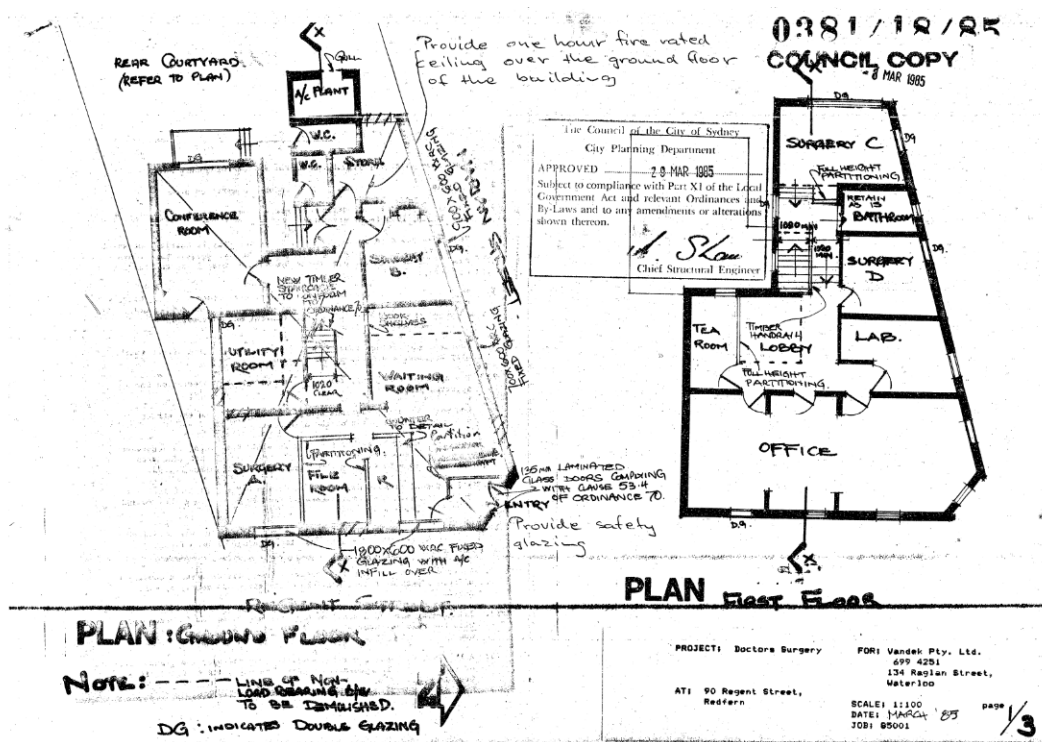 0381/18/85
COUNCIL COPY
- 8 MAR 1985
REAR COURTYARD
(REFER TO PLAN)
Provide one hour fire rated
ceiling over the ground floor
of the building
X
A/C PLANT
W.C.
W.C.
STORE
DG
CONFERENCE
ROOM
SURGERY
B.
DG.
NEW TIMBER
TO CONFORM
TO
ORDINANCE 70
DG
UTILITY
ROOM
1020
CLEAR
WAITING
ROOM
COUNTER
TO DETAIL
Partition
PARTITIONING
SURGERY
A
FILE
ROOM
R
FIXED GLAZING
ENTRY
LAMINATED
GLASS DOORS COMPLYING
WITH CLAUSE 53.4
OF ORDINANCE 70.
Provide safety
glazing
DG
1800X600 W.R.C. FIXED
GLAZING WITH A/C
INFILL OVER
X
REGENT STREET.
The Council of the City of Sydney
City Planning Department
APPROVED 28 MAR 1985
Subject to compliance with Part XI of the Local
Government Act and relevant Ordinances and
By-Laws and to any amendments or alterations
shown thereon.
Chief Structural Engineer
X
DG
SURGERY C
DG
FULL HEIGHT
PARTITIONING
RETAIN
AS IS
BATHROOM
DG
1020 MIN
1020
MIN
DG.
SURGERY
D
TEA
ROOM
TIMBER
HANDRAIL
LOBBY
LAB.
FULL HEIGHT
PARTITIONING.
OFFICE
D.G.
X
PLAN FIRST FLOOR
PLAN: GROUND FLOOR
NOTE: ---- LINE OF NON-
LOAD BEARING
TO BE DEMOLISHED.
DG : INDICATES DOUBLE GLAZING
PROJECT: Doctors Surgery
AT: 90 Regent Street,
Redfern
FOR: Vandek Pty. Ltd.
699 4251
134 Raglan Street,
Waterloo
SCALE: 1:100
DATE: MARCH '85
JOB: 85001
page 1/3